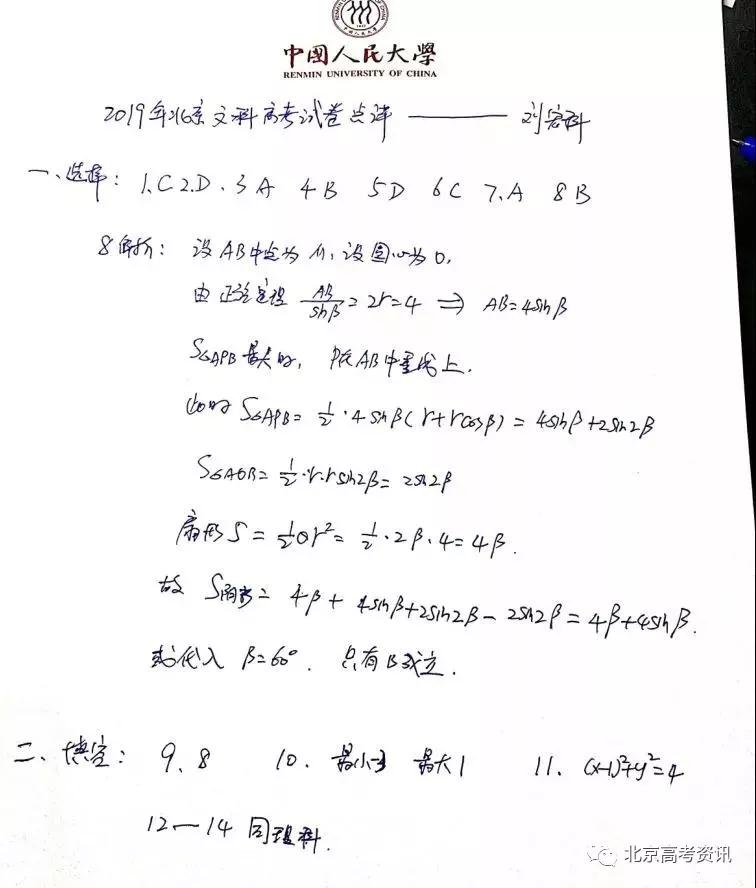 中國人民大學
RENMIN UNIVERSITY OF CHINA
2019年北京文科高考试卷点评 ——— 刘客科
一、选择: 1.C 2.D. 3 A 4 B 5 D 6 C 7.A 8 B
8解析: 设AB中点为M,设圆心为O,
由正弦定理 AB/sinβ = 2r = 4 ⇒ AB=4sinβ
S△APB最大时, P在AB中垂线上.
此时 S△APB = 1/2·4sinβ(r+rcosβ) = 4sinβ+2sin2β
S△AOB = 1/2·r·rsin2β = 2sin2β
扇形S = 1/2θr² = 1/2·2β·4 = 4β.
故 S阴影 = 4β + 4sinβ+2sin2β − 2sin2β = 4β+4sinβ.
或代入 β=60°. 只有B成立.
二、填空: 9、8 10. 最小-3 最大1 11. (x-1)²+y²=4
12—14 同理科.
北京高考资讯